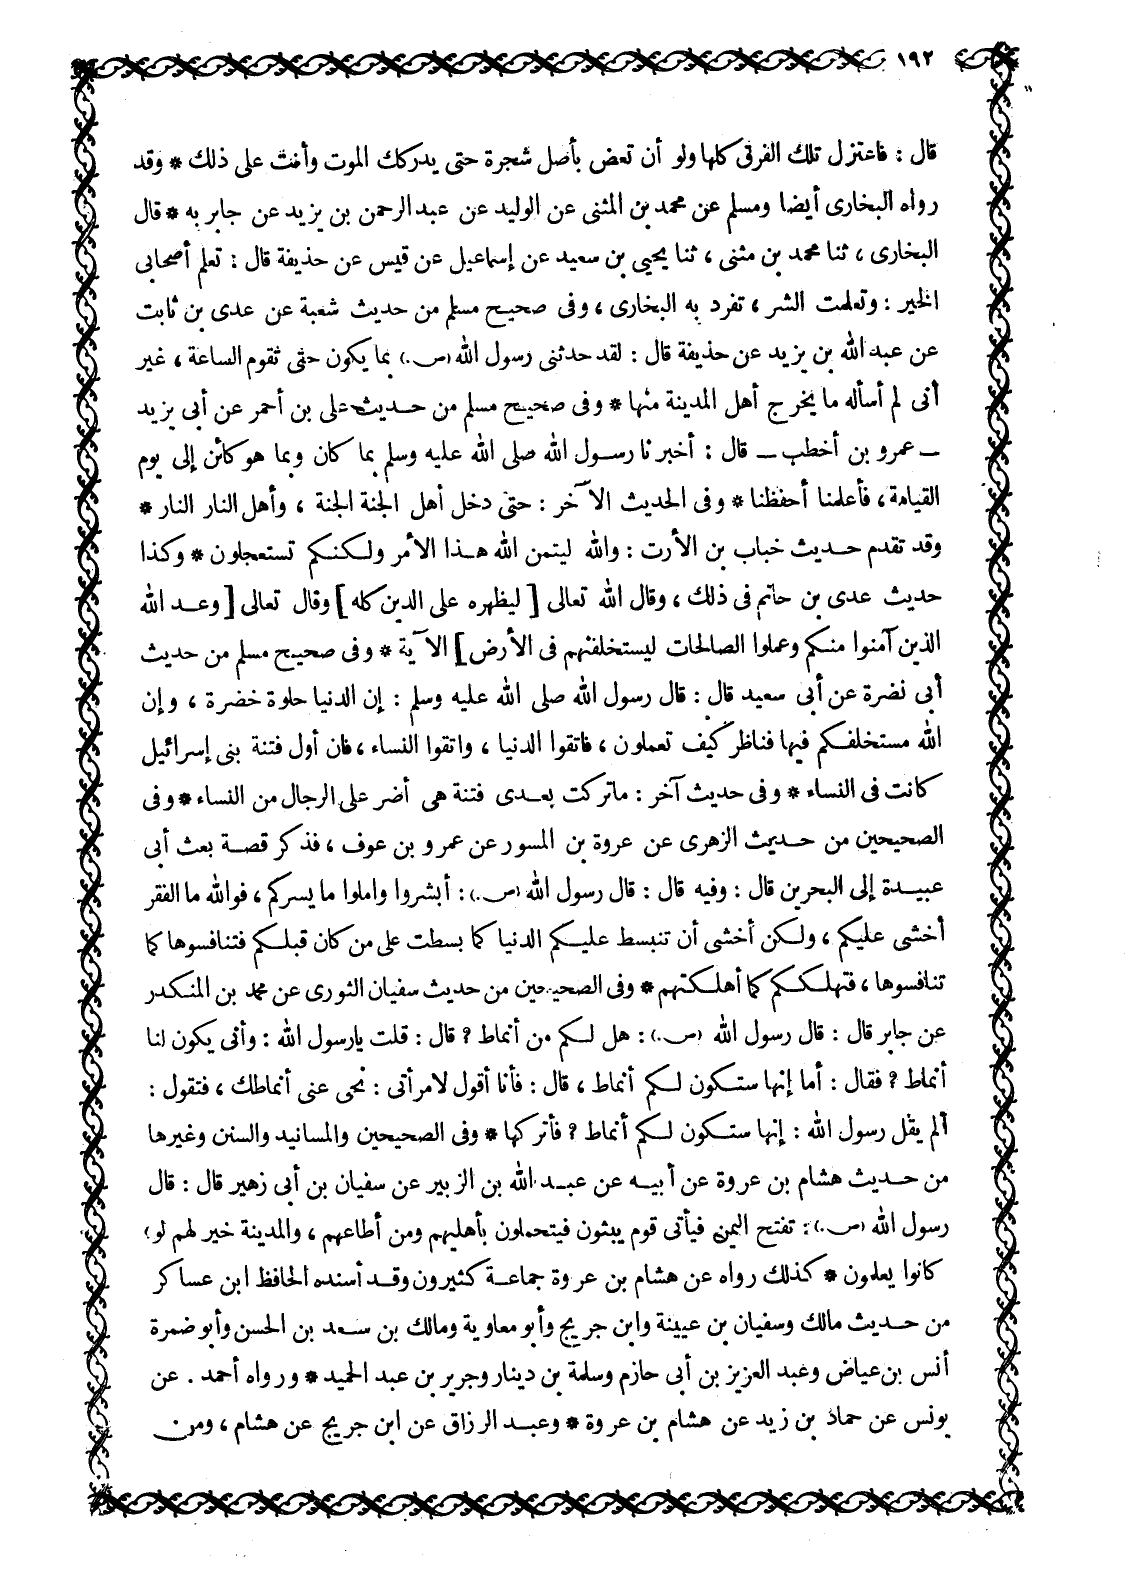 ١٩٢
قال : فاعتزل تلك الفرق كلها ولو أن تعض بأصل شجرة حتى يدركك الموت وأنت على ذلك * وقد
رواه البخارى أيضا ومسلم عن محمد بن المثنى عن الوليد عن عبد الرحمن بن يزيد عن جابر به * قال
البخارى ، ثنا محمد بن مثنى ، ثنا يحيى بن سعيد عن إسماعيل عن قيس عن حذيفة قال : تعلم أصحابى
الخير : وتعلمت الشر ، تفرد به البخارى ، وفى صحيح مسلم من حديث شعبة عن عدى بن ثابت
عن عبد الله بن يزيد عن حذيفة قال : لقد حدثنى رسول الله (ص .) بما يكون حتى تقوم الساعة ، غير
أنى لم أسأله ما يخرج أهل المدينة منها * وفى صحيح مسلم من حديث على بن أحمر عن أبى يزيد
ــ عمرو بن أخطب ــ قال : أخبرنا رسول الله صلى الله عليه وسلم بما كان وبما هو كائن إلى يوم
القيامة ، فأعلمنا أحفظنا * وفى الحديث الآخر : حتى دخل أهل الجنة الجنة ، وأهل النار النار *
وقد تقدم حديث خباب بن الأرت : والله ليتمن الله هذا الأمر ولكنكم تستعجلون * وكذا
حديث عدى بن حاتم فى ذلك ، وقال الله تعالى [ ليظهره على الدين كله ] وقال تعالى [ وعد الله
الذين آمنوا منكم وعملوا الصالحات ليستخلفنهم فى الأرض ] الآية * وفى صحيح مسلم من حديث
أبى نضرة عن أبى سعيد قال : قال رسول الله صلى الله عليه وسلم : إن الدنيا حلوة خضرة ، وإن
الله مستخلفكم فيها فناظر كيف تعملون ، فاتقوا الدنيا ، واتقوا النساء ، فان أول فتنة بنى إسرائيل
كانت فى النساء * وفى حديث آخر : ما تركت بعدى فتنة هى أضر على الرجال من النساء * وفى
الصحيحين من حديث الزهرى عن عروة بن المسور عن عمرو بن عوف ، فذكر قصة بعث أبى
عبيدة إلى البحرين قال : وفيه قال : قال رسول الله (ص .) : أبشروا واملوا ما يسركم ، فوالله ما الفقر
أخشى عليكم ، ولكن أخشى أن تنبسط عليكم الدنيا كما بسطت على من كان قبلكم فتنافسوها كما
تنافسوها ، فتهلككم كما أهلكتهم * وفى الصحيحين من حديث سفيان الثورى عن محمد بن المنكدر
عن جابر قال : قال رسول الله (ص .) : هل لكم من أنماط ؟ قال : قلت يارسول الله : وأنى يكون لنا
أنماط ؟ فقال : أما إنها ستكون لكم أنماط ، قال : فأنا أقول لامرأتى : نحى عنى أنماطك ، فتقول :
ألم يقل رسول الله : إنها ستكون لكم أنماط ؟ فأتركها * وفى الصحيحين والمسانيد والسنن وغيرها
من حديث هشام بن عروة عن أبيه عن عبد الله بن الزبير عن سفيان بن أبى زهير قال : قال
رسول الله (ص .) : تفتح اليمن فيأتى قوم يبثون فيتحملون بأهليهم ومن أطاعهم ، والمدينة خير لهم لو )
كانوا يعلمون * كذلك رواه عن هشام بن عروة جماعة كثيرون وقد أسنده الحافظ ابن عساكر
من حديث مالك وسفيان بن عيينة وابن جريج وأبو معاوية ومالك بن سعد بن الحسن وأبو ضمرة
أنس بن عياض وعبد العزيز بن أبى حازم وسلمة بن دينار وجرير بن عبد الحميد * ورواه أحمد . عن
يونس عن حماد بن زيد عن هشام بن عروة * وعبد الرزاق عن ابن جريج عن هشام ، ومن